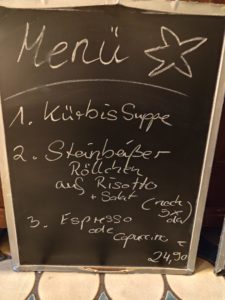 Menü
1. KürbisSuppe
2. Steinbeißer
Röllchen
auf Risotto
+ Salat
(noch
da)
3. Espresso
ode
Capuccino €
24,90